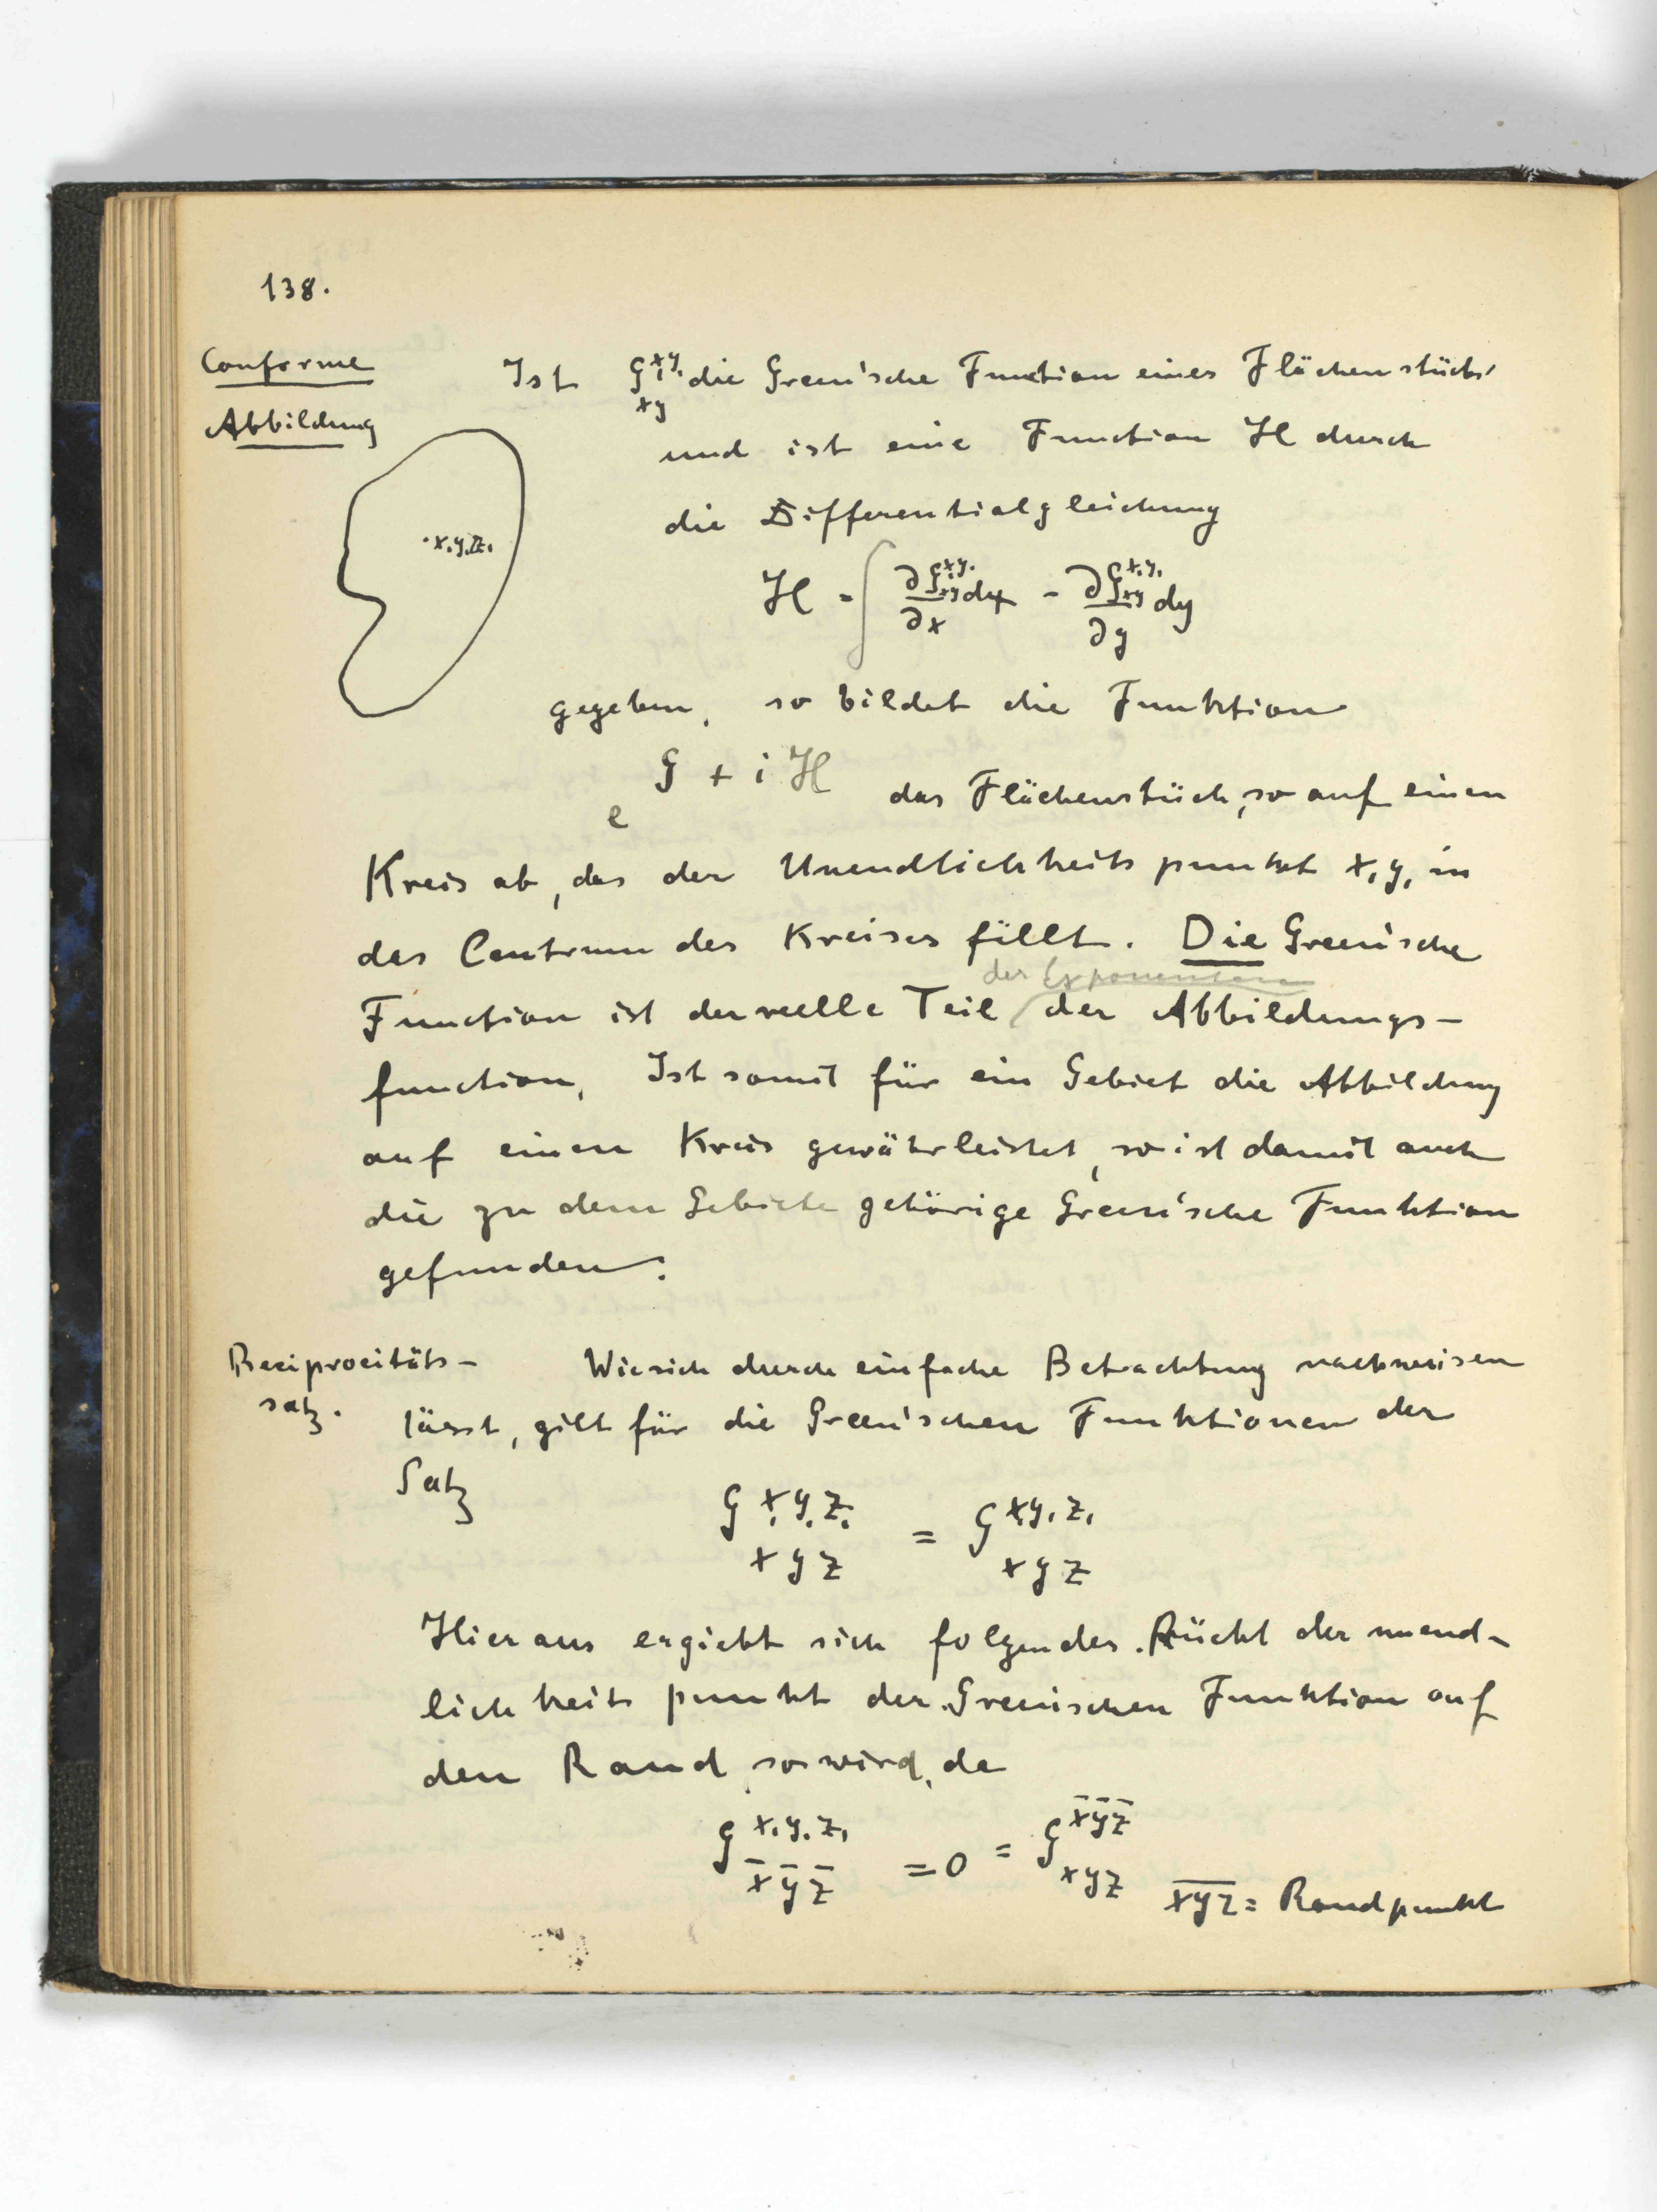 138.
Conforme
Abbildung
Ist G x₁y₁ xy die Green'sche Function eines Flächenstücks
und ist eine Function H durch
die Differentialgleichung
·x₁y₁z₁
H = ∫ ∂G x₁y₁ xy / ∂x dy - ∂G x₁y₁ xy / ∂y dy
gegeben, so bildet die Funktion
e G + i H das Flächenstück, so auf einen
Kreis ab, das der Unendlichkeitspunkt x₁y₁ in
das Centrum des Kreises fällt. Die Green'sche
der Exponenten
Function ist der reelle Teil der Abbildungs-
function, Ist somit für ein Gebiet die Abbildung
auf einen Kreis gewährleistet, so ist damit auch
die zu dem Gebiete gehörige Green'sche Funktion
gefunden.
Reciprocitäts-
satz.
Wie sich durch einfache Betrachtung nachweisen
lässt, gilt für die Green'schen Funktionen der
Satz
G x₁y₁z₁ xyz = G x₁y₁z₁ xyz
Hieraus ergiebt sich folgendes. Rückt der unend-
lichkeitspunkt der Greenischen Funktion auf
den Rand so wird, da
G x₁y₁z₁ x̄ȳz̄ = 0 = G x̄ȳz̄ xyz
x̄ȳz̄ = Randpunkt